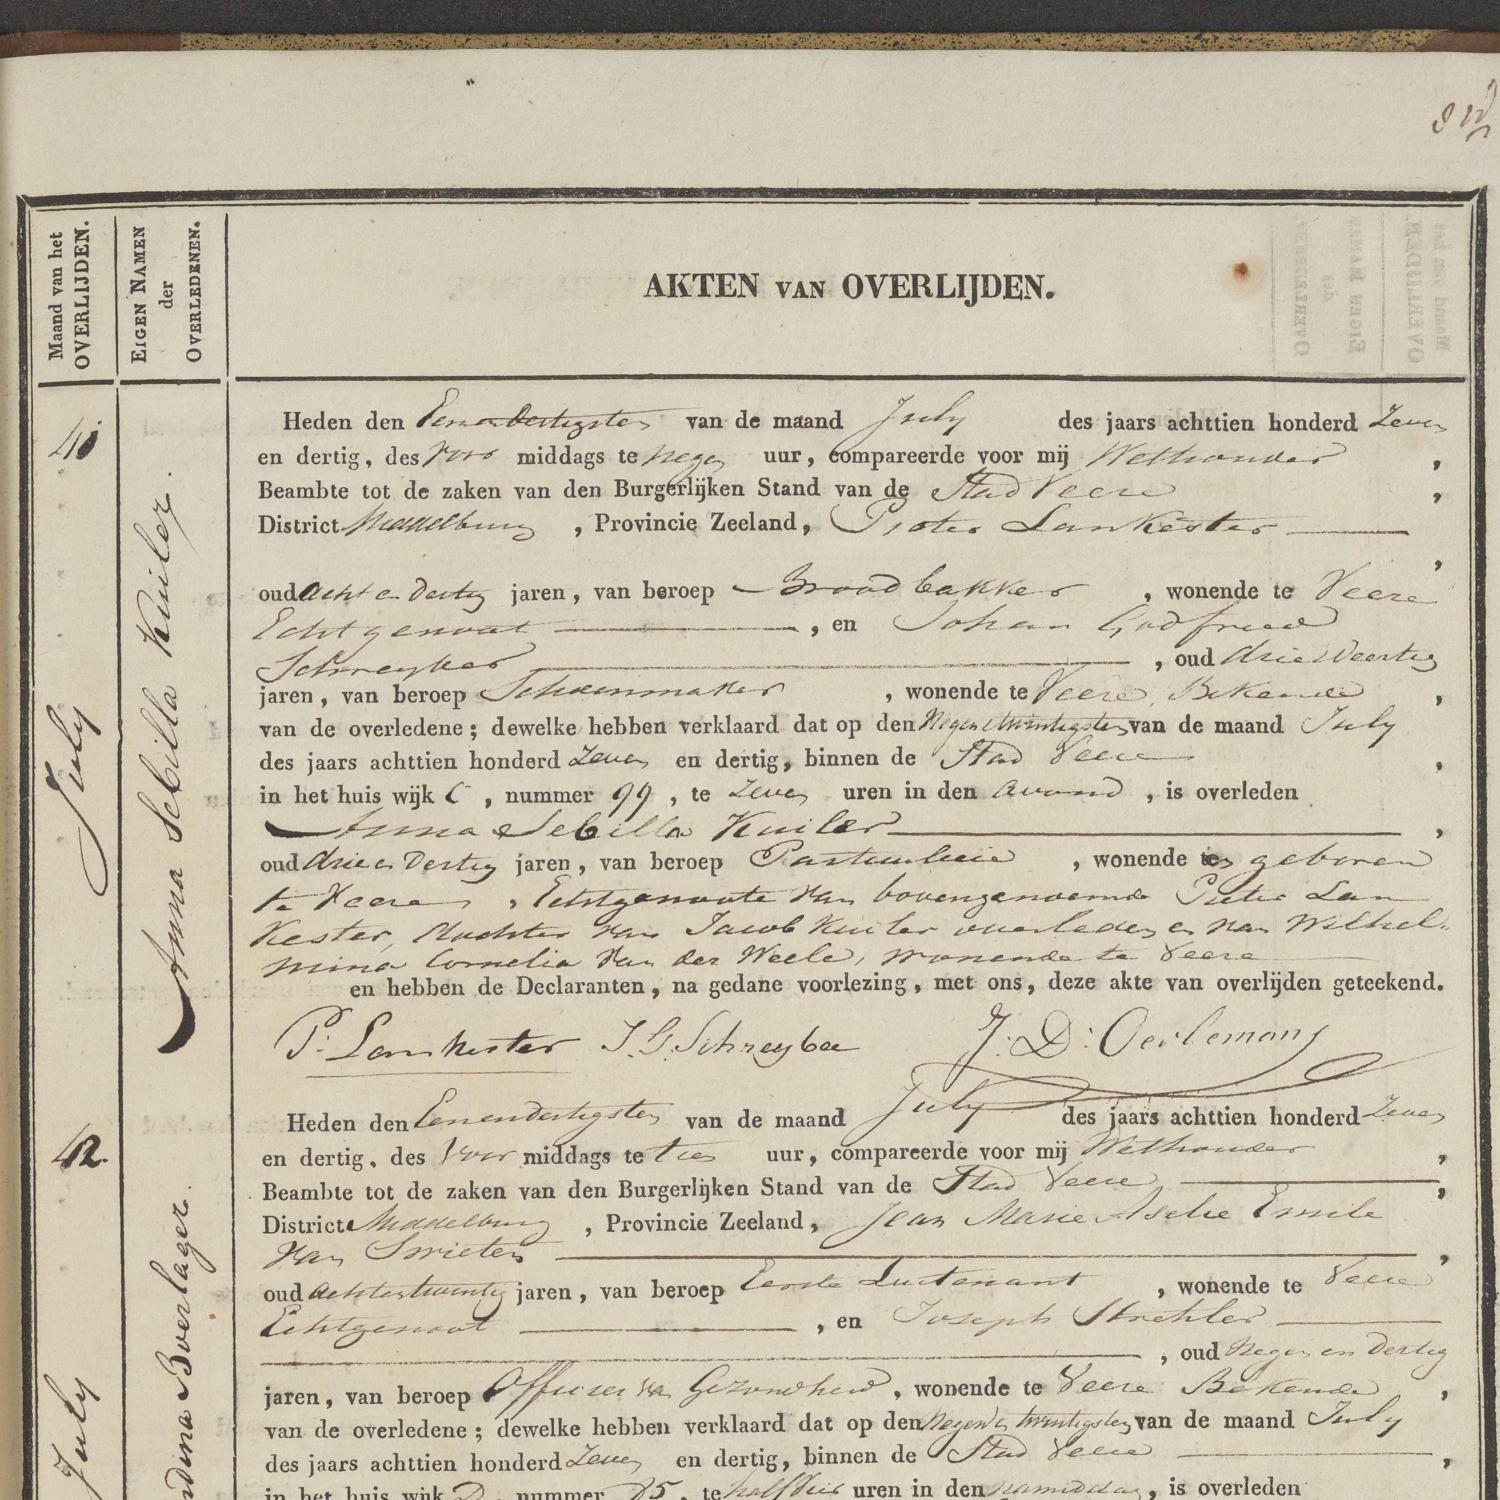 Maand van het
OVERLIJDEN.
EIGEN NAMEN
der
OVERLEDENEN.
AKTEN VAN OVERLIJDEN.
41
July
Anna Sebilla Kuiler.
Heden den Eenendertigsten van de maand July des jaars achttien honderd Zeven
en dertig, des voor middags te negen uur, compareerde voor mij Wethouder,
Beambte tot de zaken van den Burgerlijken Stand van de Stad Veere,
District Middelburg, Provincie Zeeland, Pieter Lankester,
oud acht en dertig jaren, van beroep Broodbakker, wonende te Veere
Echtgenoot, en Johan Godfried
Schreyber, oud drie en Veertig
jaren, van beroep Schoenmaker, wonende te Veere, Bekende,
van de overledene; dewelke hebben verklaard dat op den Negenentwintigsten van de maand July
des jaars achttien honderd Zeven en dertig, binnen de Stad Veere,
in het huis wijk C, nummer 99, te Zeven uren in den avond, is overleden
Anna Sebilla Kuiler,
oud drie en Dertig jaren, van beroep, wonende te geboren
te Veere, Echtgenoote van bovengenoemde Pieter Lan
kester, dochter van Jacob Kuiler overleden en van Wilhel-
mina Cornelia van der Weele, wonende te Veere
en hebben de Declaranten, na gedane voorlezing, met ons, deze akte van overlijden geteekend.
P. Lankester J. G. Schreyber J: D: Oerlemans
42.
July
ndina Boerlager.
Heden den Eenendertigsten van de maand July des jaars achttien honderd Zeven
en dertig, des Voor middags te tien uur, compareerde voor mij Wethouder,
Beambte tot de zaken van den Burgerlijken Stand van de Stad Veere,
District Middelburg, Provincie Zeeland, Jean Marie Emile
van Swieten,
oud achtentwintig jaren, van beroep Eerste Luitenant, wonende te Veere
Echtgenoot, en Joseph Strehler
, oud Negen en Dertig
jaren, van beroep Officier van Gezondheid, wonende te Veere Bekende,
van de overledene; dewelke hebben verklaard dat op den Negen en twintigsten van de maand July
des jaars achttien honderd Zeven en dertig, binnen de Stad Veere,
in het huis wijk D, nummer 85, te half drie uren in den namiddag, is overleden